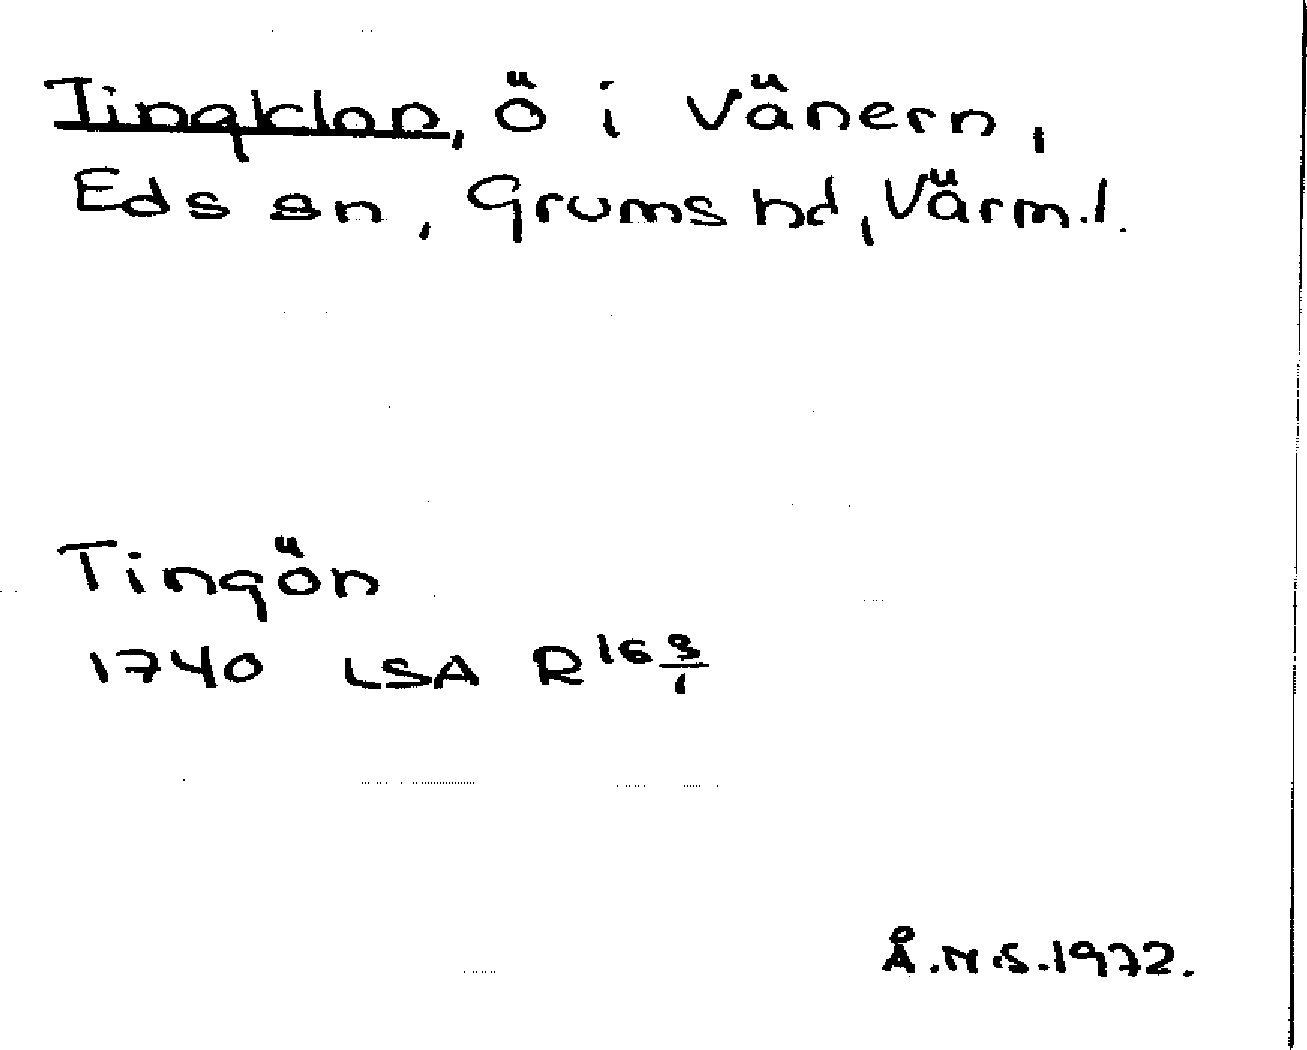 Tingklon, ö i Vänern,
Eds sn, Grums hd, Värml.
Tingön
1740 LSA R16 3/1
Å.N.S. 1972.